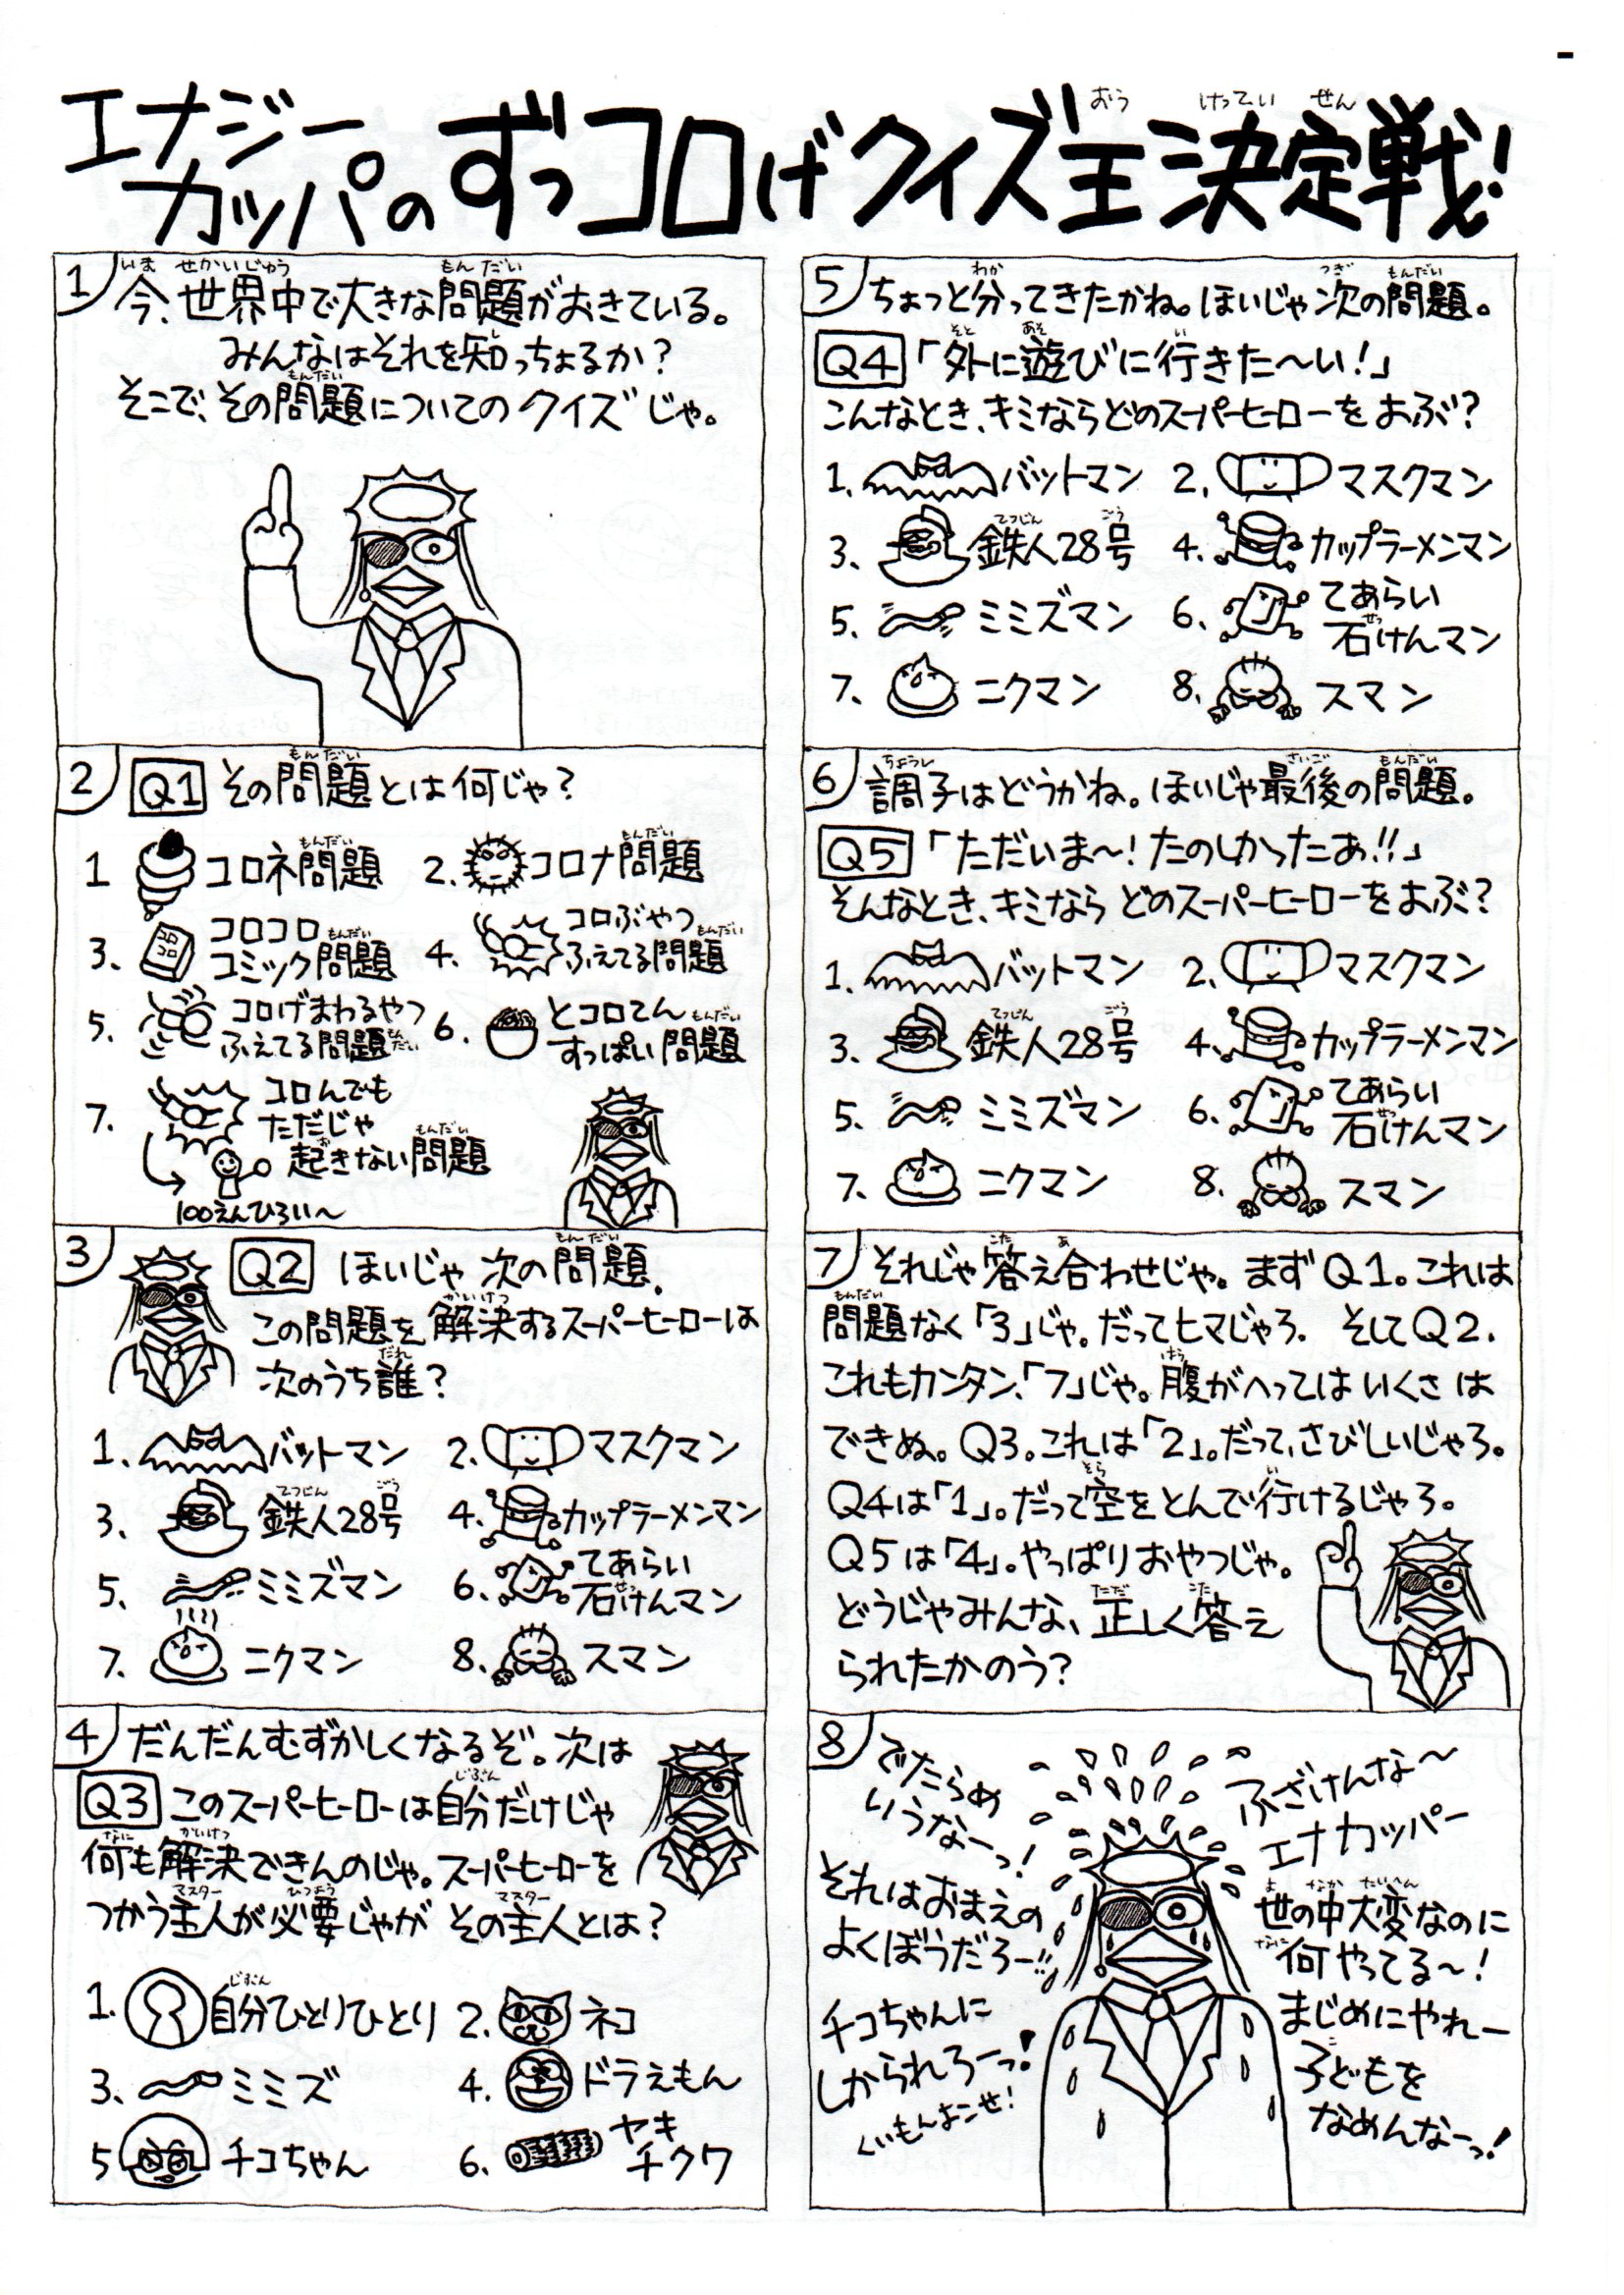 エナジー
カッパのずっコロげクイズ王決定戦!
おう けってい せん
1
いま せかいじゅう もんだい
今、世界中で大きな問題がおきている。
みんなはそれを知っちょるか?
し
もんだい
そこで、その問題についてのクイズじゃ。
2
もんだい
Q1 その問題とは何じゃ?
もんだい もんだい
1 コロネ問題 2.コロナ問題
コロコロ
コロコロ もんだい コロぶやつ もんだい
3、コミック問題 4. ふえてる問題
コロげまわるやつ とコロてん もんだい
5. ふえてる問題 もんだい 6. すっぱい問題
7. コロんでも
ただじゃ
お もんだい
起きない問題
100えんひろい〜
3
もんだい
Q2 ほいじゃ次の問題.
かいけつ
この問題を解決するスーパーヒーローは
だれ
次のうち誰?
1.バットマン 2.マスクマン
てつじん ごう
3、鉄人28号 4.カップラーメンマン
5、ミミズマン 6.てあらい
せっ
石けんマン
7. ニクマン 8.スマン
4
だんだんむずかしくなるぞ。次は
じぶん
Q3 このスーパーヒーローは自分だけじゃ
なに かいけつ
何も解決できんのじゃ。スーパーヒーローを
マスター ひつよう マスター
つかう主人が必要じゃが その主人とは?
じぶん
1.自分ひとりひとり 2.ネコ
3、ミミズ 4.ドラえもん
5 チコちゃん 6. ヤキ
チクワ
5
わか つぎ もんだい
ちょっと分ってきたかね。ほいじゃ次の問題。
そと あそ い
Q4「外に遊びに行きた〜い!」
こんなとき、キミならどのスーパーヒーローをよぶ?
1.バットマン 2.マスクマン
てつじん ごう
3.鉄人28号 4.カップラーメンマン
5.ミミズマン 6.てあらい
せっ
石けんマン
7. ニクマン 8.スマン
6
ちょうし さいご もんだい
調子はどうかね。ほいじゃ最後の問題。
Q5「ただいま〜!たのしかったあ!!」
そんなとき、キミならどのスーパーヒーローをよぶ?
1.バットマン 2.マスクマン
てつじん ごう
3.鉄人28号 4、カップラーメンマン
5.ミミズマン 6.てあらい
せっ
石けんマン
7. ニクマン 8.スマン
7
こた あ
それじゃ答え合わせじゃ。まずQ1。これは
もんだい
問題なく「3」じゃ。だってヒマじゃろ. そしてQ2.
はら
これもカンタン、「7」じゃ。腹がへってはいくさは
できぬ。Q3。これは「2」。だって、さびしいじゃろ。
そら い
Q4は「1」。だって空をとんで行けるじゃろ。
Q5は「4」。やっぱりおやつじゃ。
ただ こた
どうじゃみんな、正しく答え
られたかのう?
8
でたらめ
いうなーっ!
それはおまえの
よくぼうだろー!!
チコちゃんに
しかられろーっ!
くいもんよこせ!
ふざけんな〜
エナカッパー
よ なか たいへん
世の中大変なのに
なに
何やってる〜!
まじめにやれー
こ
子どもを
なめんなーっ!